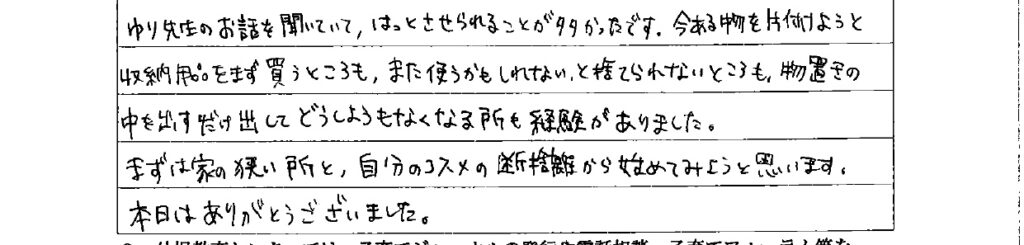 ゆり先生のお話を聞いていて、はっとさせられることが多かったです。今ある物を片付けようと
収納用品をまず買うところも、また使うかもしれない、と捨てられないところも、物置きの
中を出すだけ出してどうしようもなくなる所も経験がありました。
まずは家の狭い所と、自分のコスメの断捨離から始めてみようと思います。
本日はありがとうございました。